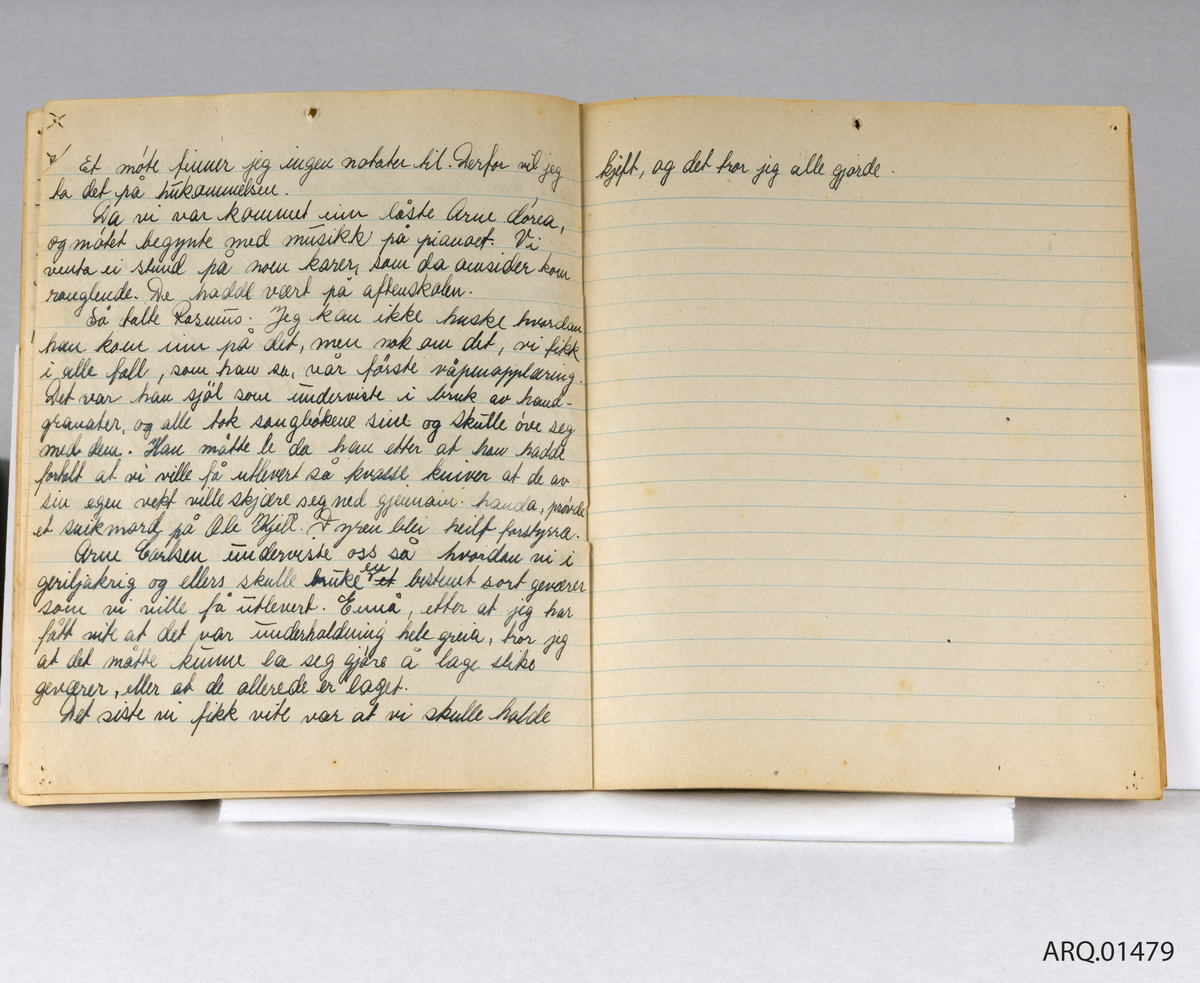 Et møte finner jeg ingen notater til. Derfor vil jeg
ta det på hukommelsen.
Da vi var kommet inn låste Arne døra,
og møtet begynte med musikk på pianoet. Vi
venta ei stund på noen karer, som da omsider kom
ranglende. De hadde vært på aftenskolen.
Så talte Rasmus. Jeg kan ikke huske hvordan
han kom inn på det, men nok om det, vi fikk
i alle fall, som han sa, vår første våpenopplæring.
Det var han sjøl som underviste i bruk av hand-
granater, og alle tok sangbøkene sine og skulle øve seg
med dem. Han måtte le da han etter at han hadde
fortalt at vi ville få utlevert så kvasse kniver at de av
sin egen vekt ville skjære seg ned gjennom handa, prøvde
et snikmord på Ole Kjell. Fyren blei heilt forstyrra.
Arne Carlsen underviste oss så hvordan vi i
geriljakrig og ellers skulle bruke en et bestemt sort geværer
som vi ville få utlevert. Ennå, etter at jeg har
fått vite at det var underholdning hele greia, tror jeg
at det måtte kunne la seg gjøre å lage slike
geværer, eller at de allerede er laget.
Det siste vi fikk vite var at vi skulle holde
kjeft, og det tror jig alle gjorde.
ARQ.01479